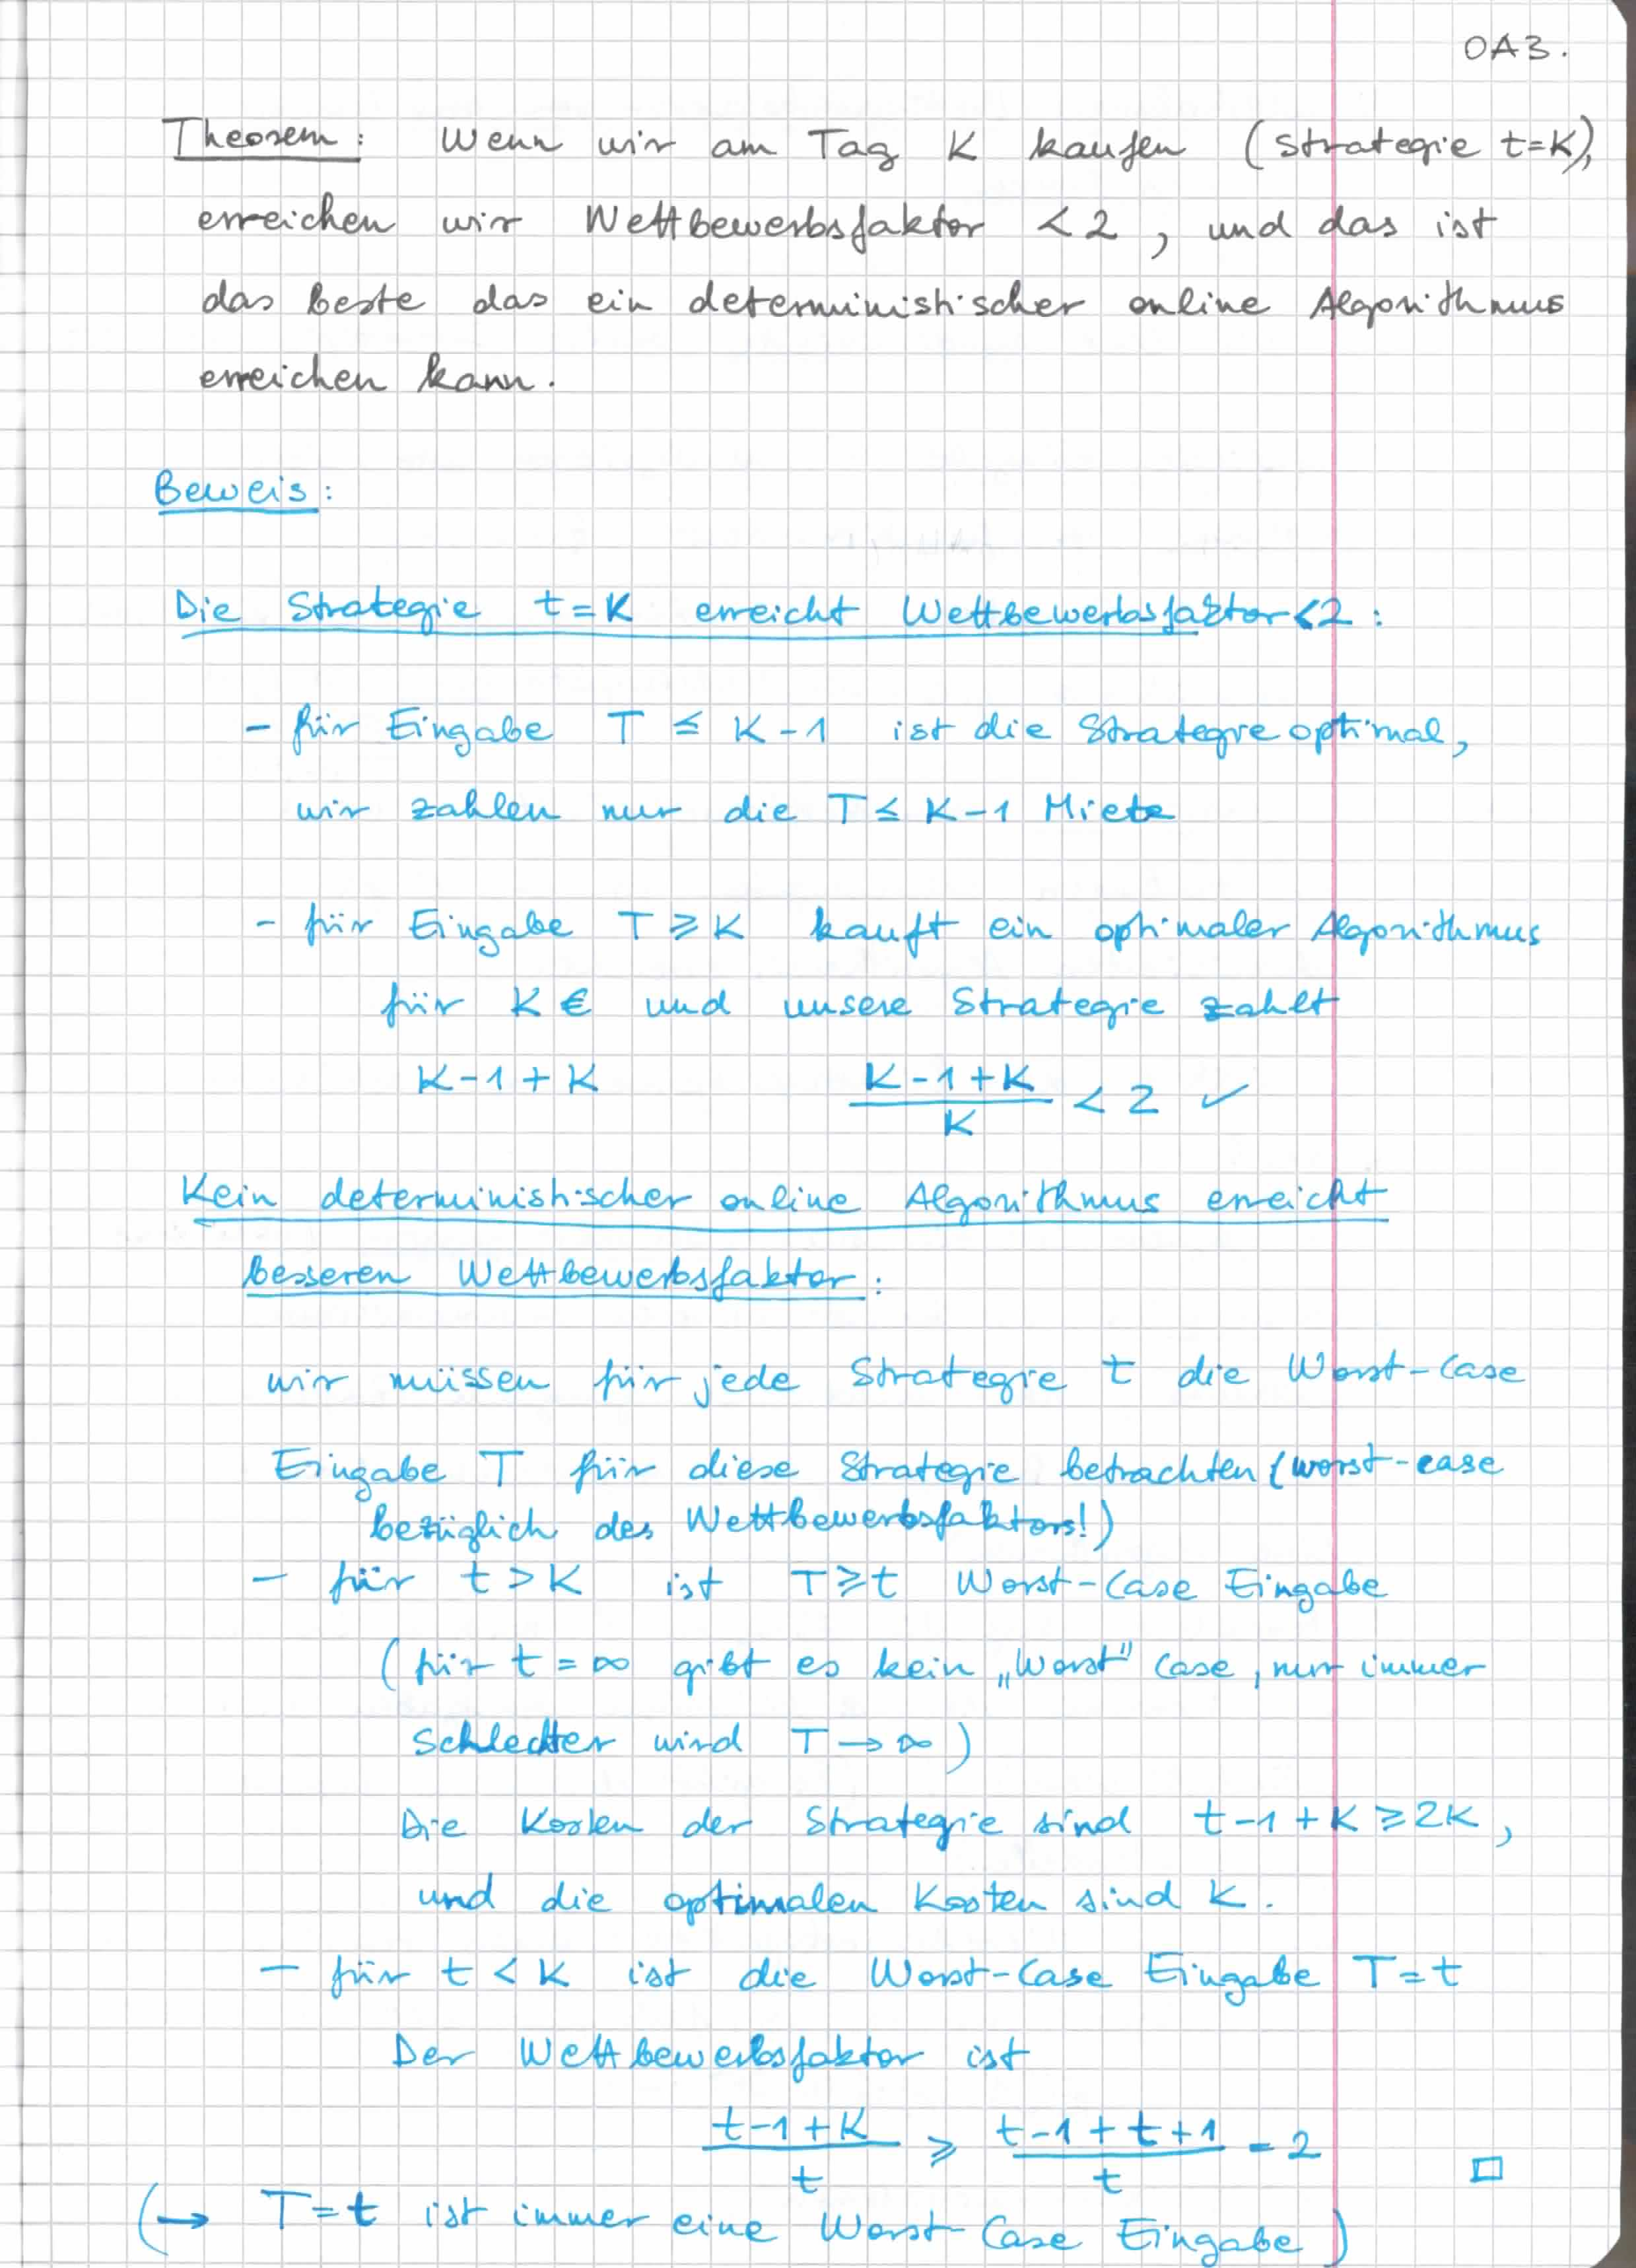 OA3.
Theorem: Wenn wir am Tag K kaufen (Strategie t=K),
erreichen wir Wettbewerbsfaktor < 2, und das ist
das Beste das ein deterministischer online Algorithmus
erreichen kann.
Beweis:
Die Strategie t=K erreicht Wettbewerbsfaktor<2:
- für Eingabe T ≤ K-1 ist die Strategie optimal,
wir zahlen nur die T ≤ K-1 Miete
- für Eingabe T ≥ K kauft ein optimaler Algorithmus
für K € und unsere Strategie zahlt
K-1+K (K-1+K)/K < 2 ✓
Kein deterministischer online Algorithmus erreicht
besseren Wettbewerbsfaktor:
wir müssen für jede Strategie t die Worst-Case
Eingabe T für diese Strategie betrachten (worst-case
bezüglich des Wettbewerbsfaktors!)
- für t > K ist T ≥ t Worst-Case Eingabe
(für t = ∞ gibt es kein „Worst" Case, nur immer
schlechter wird T → ∞)
Die Kosten der Strategie sind t-1+K ≥ 2K,
und die optimalen Kosten sind K.
- für t < K ist die Worst-Case Eingabe T=t
Der Wettbewerbsfaktor ist
(t-1+K)/t ≥ (t-1+t+1)/t = 2 □
(→ T=t ist immer eine Worst-Case Eingabe)